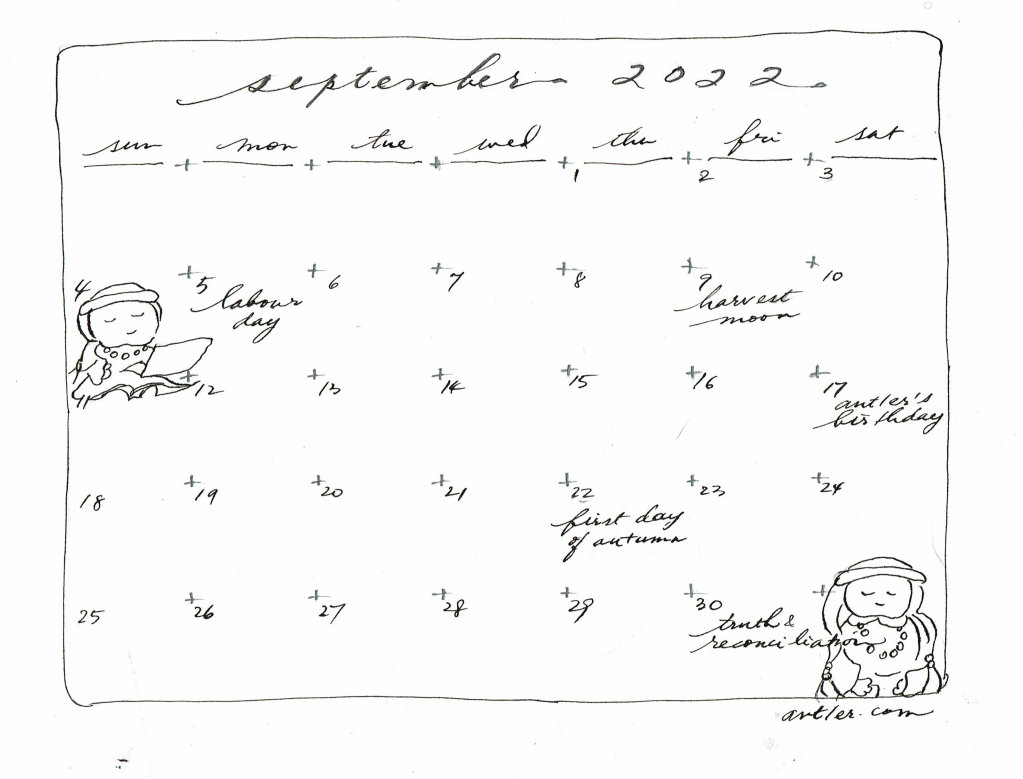 september 2022
sun mon tue wed thu fri sat
1 2 3
4 5 6 7 8 9 10
labour
day
harvest
moon
11 12 13 14 15 16 17
antler's
birthday
18 19 20 21 22 23 24
first day
of autumn
25 26 27 28 29 30
truth &
reconciliation
antler.com